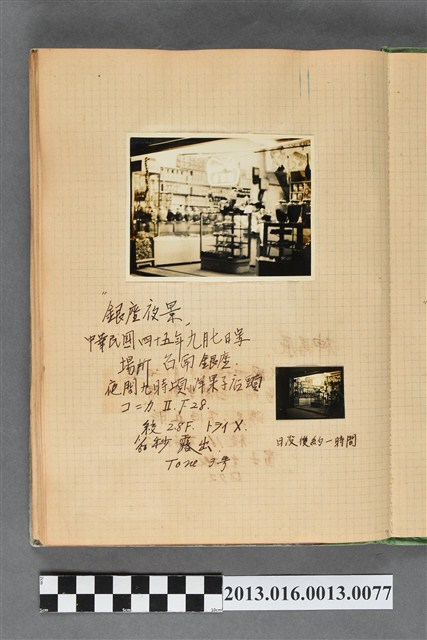 "銀座夜景"
中華民國四十五年九月七日
場所 台南銀座
夜間九時頃 洋菓子店頭
コニカ Ⅱ. F28.
絞 2.8F. トライX.
秒 露出
Tone 3号
日没後約一時間
2013.016.0013.0077